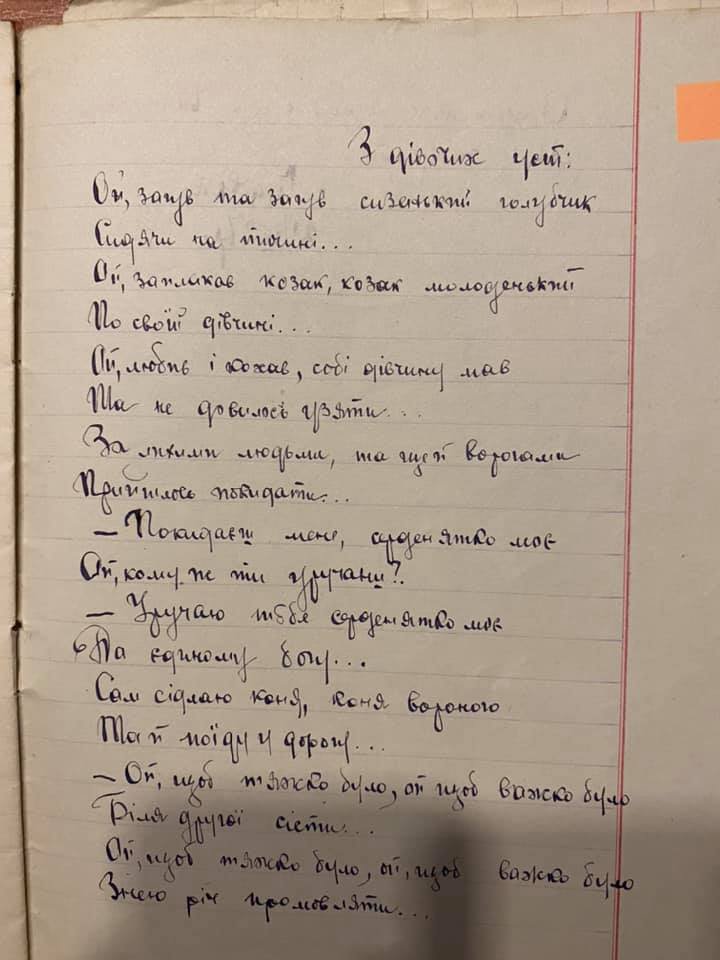 З дівочих уст:
Ой, загув та загув сизанький голубчик
Сидячи на тичині...
Ой, заплакав козак, козак молоденький
По своїй дівчині...
Ой, любив і кохав, собі дівчину мав
Та не довилось узяти...
За лихими людьми, та щей ворогами
Прийшлось покидати...
– Покидаєш мене, серденятко моє
Ой, кому ж ти уручаиш?
– Уручаю тебе серденятко моє
Та єдиному богу...
Сам сідлаю коня, коня вороного
Та й поїду у дорогу...
– Ой, щоб тяжко було, ой щоб важко було
Біля другої сісти...
Ой, щоб тяжко було, ой, щоб важко було
Знею річ промовляти...